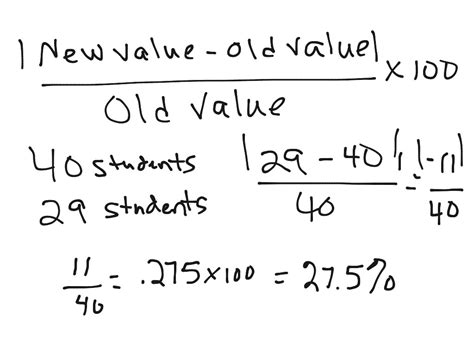 |New value - old value| / Old value × 100
40 students
29 students
|29 - 40| / 40 = |-11| / 40
11/40 = .275 × 100 = 27.5%